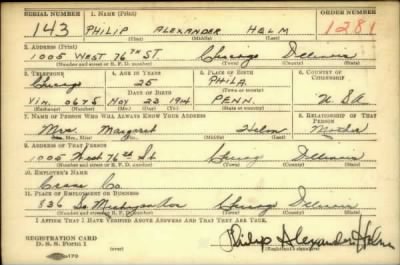 SERIAL NUMBER 1. NAME (Print) ORDER NUMBER
143 PHILIP ALEXANDER HELM 1281
(First) (Middle) (Last)
2. ADDRESS (Print)
1005 WEST 76TH ST. Chicago Illinois
(Number and street or R. F. D. number) (Town) (County) (State)
3. TELEPHONE 4. AGE IN YEARS 5. PLACE OF BIRTH 6. COUNTRY OF CITIZENSHIP
Chicago 25 PHILA.
DATE OF BIRTH (Town or county)
Vin. 0675 Nov 22 1914 PENN. U SA
(Exchange) (Number) (Mo.) (Day) (Yr.) (State or country)
7. NAME OF PERSON WHO WILL ALWAYS KNOW YOUR ADDRESS 8. RELATIONSHIP OF THAT PERSON
Mrs. Margaret Helm Mother
(Mr., Mrs., Miss) (First) (Middle) (Last)
9. ADDRESS OF THAT PERSON
1005 West 76th St Chicago Illinois
(Number and street or R. F. D. number) (Town) (County) (State)
10. EMPLOYER'S NAME
Crane Co.
11. PLACE OF EMPLOYMENT OR BUSINESS
836 So. Michigan Ave Chicago Illinois
(Number and street or R. F. D. number) (Town) (County) (State)
I AFFIRM THAT I HAVE VERIFIED ABOVE ANSWERS AND THAT THEY ARE TRUE.
REGISTRATION CARD
D. S. S. Form 1 (over) Philip Alexander Helm
(Registrant's signature)